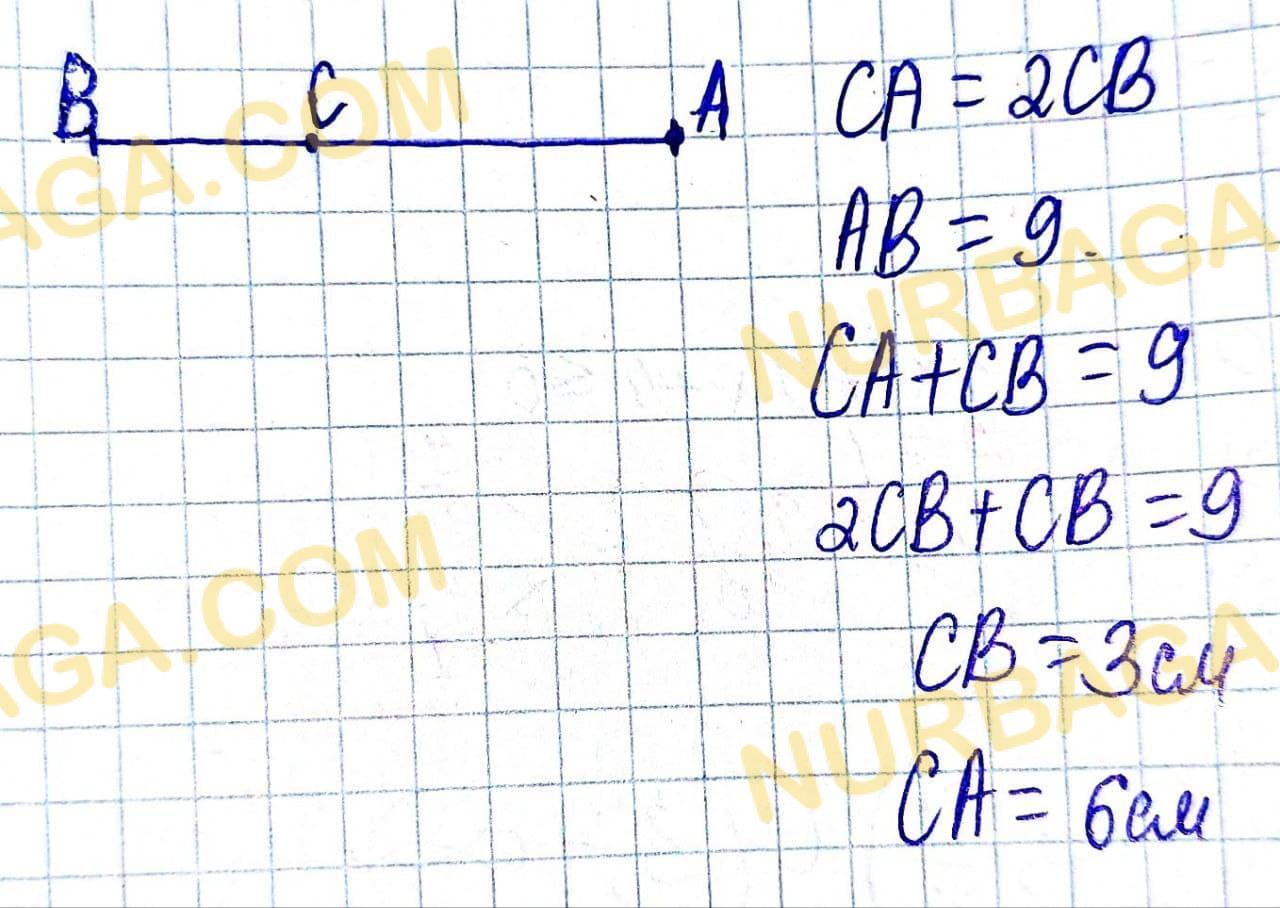 B C A CA = 2CB
AB = 9.
CA+CB = 9
2CB+CB = 9
CB = 3см
CA = 6см
AGA.COM
NURBAGA
AGA.COM
NURBAGA